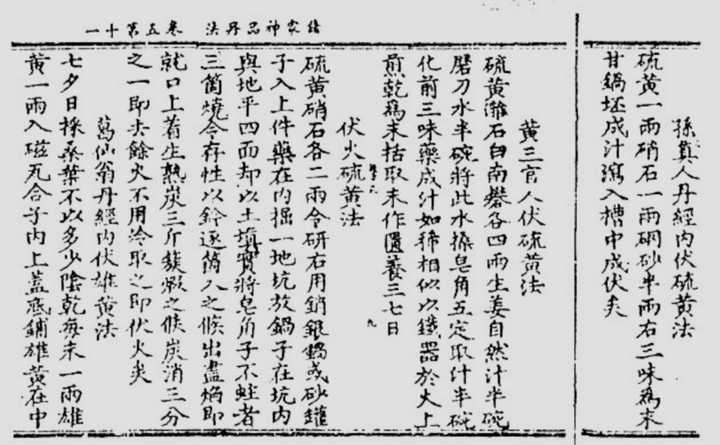 孫真人丹經內伏硫黃法
硫黃一兩硝石一兩硇砂半兩右三味為末
甘鍋坯成汁瀉入槽中成伏矣
諸家神品丹法 卷五第十一
黃三官人伏硫黃法
硫黃滑石白南礬各四兩生姜自然汁半碗
磨刀水半碗將此水搡皂角五定取汁半碗
化前三味藥成汁如稀相似以鐵器於火上
煎乾為末括取末作匱養三七日
伏火硫黃法
硫黃硝石各二兩令研右用銷銀鍋或砂罐
子入上件藥在內掘一地坑放鍋子在坑內
與地平四面却以土填實將皂角子不蛀者
三箇燒令存性以鈐逐箇入之候出盡焰即
就口上着生熟炭三斤簇煅之候炭消三分
之一即去餘火不用冷取之即伏火矣
葛仙翁丹經內伏雄黃法
七夕日採桑葉不以多少陰乾每末一兩雄
黃一兩入磁瓦合子內上蓋底鋪雄黃在中
九